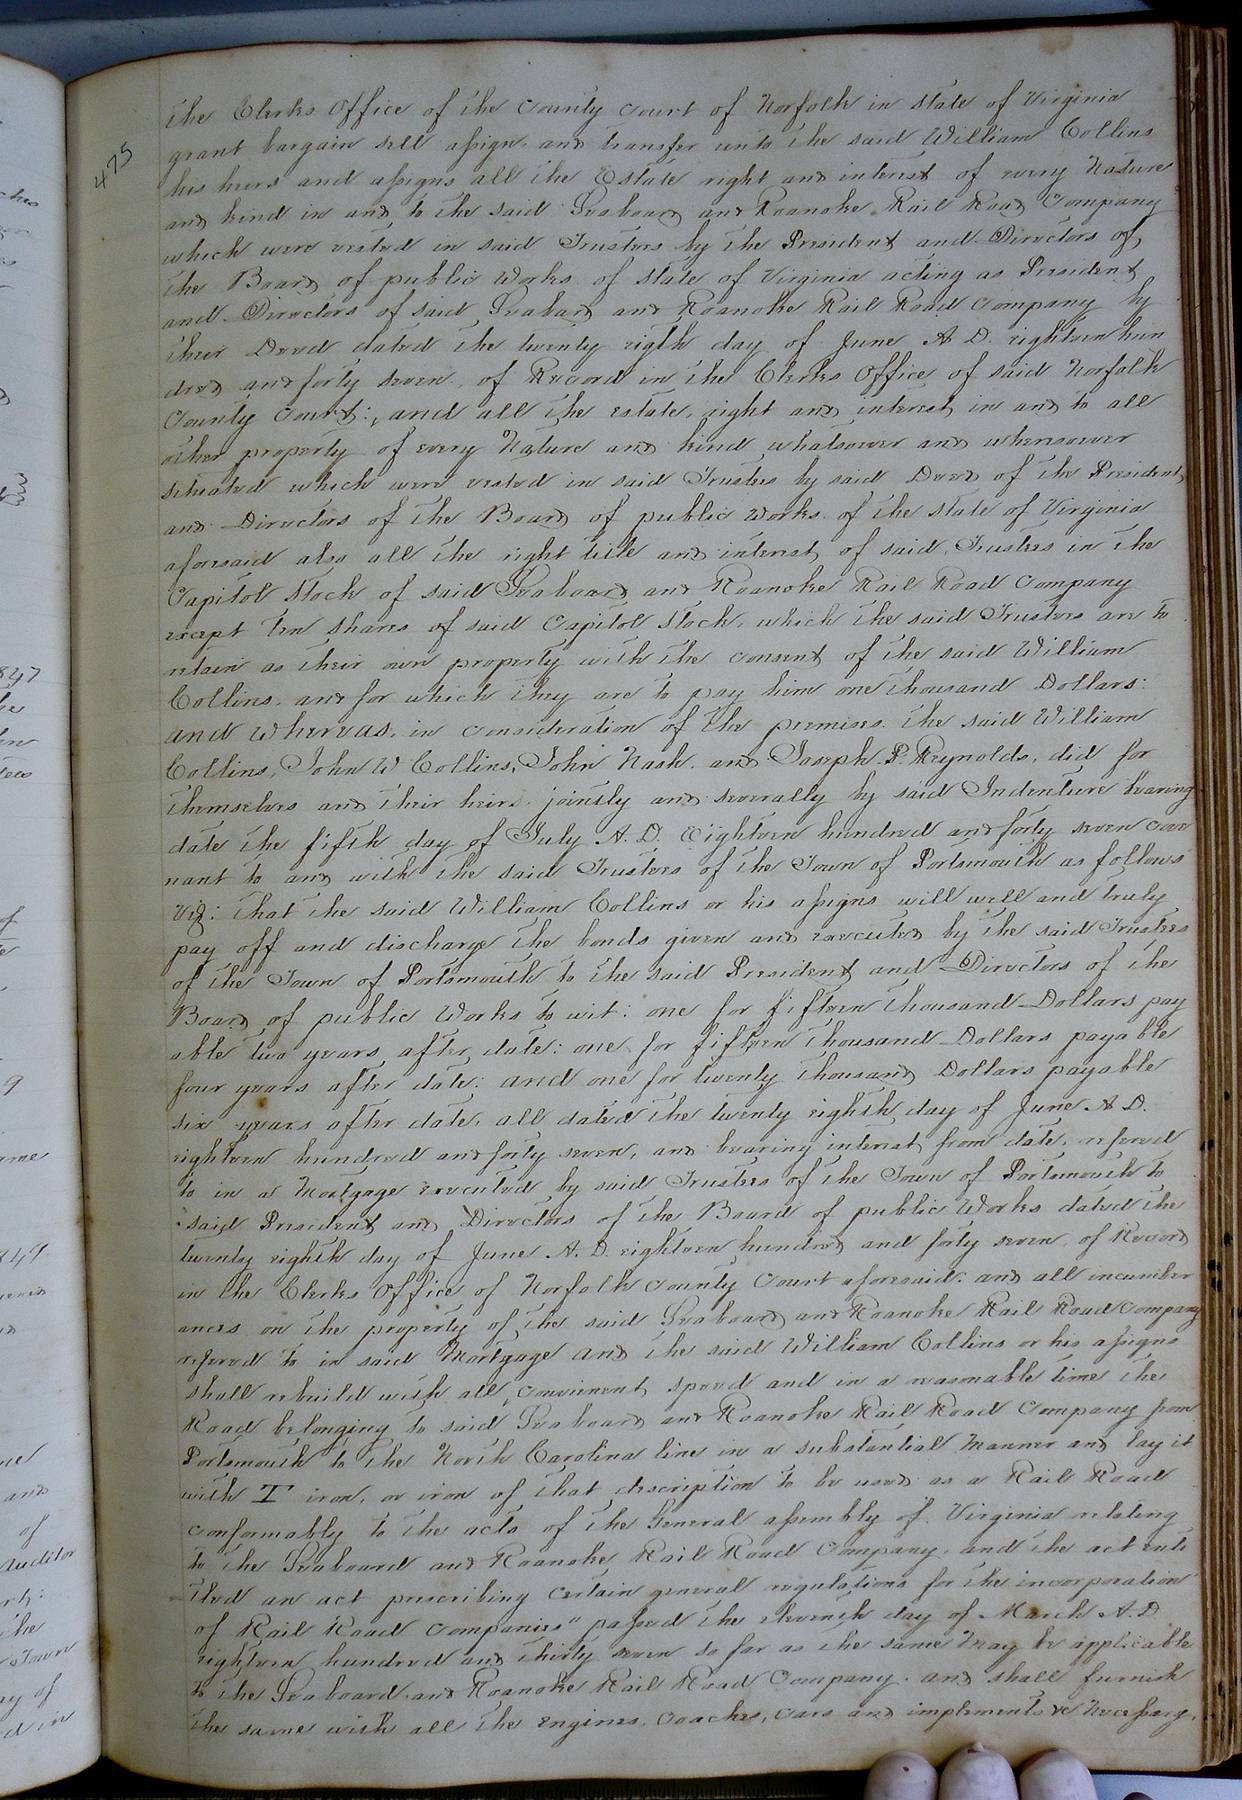 475
the Clerks Office of the County Court of Norfolk in state of Virginia
grant bargain sell assign, and transfer unto the said William Collins
his heirs and assigns all the Estate right and interest of every Nature
and kind in and to the said Seaboard and Roanoke Rail Road Company
which were vested in said Trustees by the President and Directors of
the Board of public Works of state of Virginia acting as President
and Directors of said Seabard and Roanoke Rail Road Company by
their Deed dated the twenty eigth day of June A D. eighteen hun
dred and forty seven, of Record in the Clerks Office of said Norfolk
County Court:, and all the estate, right and interest in and to all
other property of every Nature and kind whatsoever and whersoever
situated which were vested in said Trustees by said Deed of the President
and Directors of the Board of public Works of the state of Virginia
aforesaid also all the right title and interest of said Trustees in the
Capitol Stock of said Seaboard and Roanoke Rail Road Company
except ten shares of said Capitol Stock, which the said Trustees are to
retain as their own property with the consent of the said William
Collins, and for which they are to pay him one thousand Dollars:
and Whereas, in consideration of the premises the said William
Collins, John W Collins, John Nash. and Joseph P. Reynolds, did for
themselves and their heirs jointly and severally by said Indenture bearing
date the fifth day of July A. D. Eighteen hundred and forty seven cove
nant to and with the said Trustees of the Town of Portsmouth as follows
Viz: that the said William Collins or his assigns will well and truly
pay off and discharge the bonds given and executed by the said Trustees
of the Town of Portsmouth to the said President and Directors of the
Board of public Works to wit: one for fifteen thousand Dollars pay
able two years after date: one for fifteen thousand Dollars payable
four years after date: and one for twenty thousand Dollars payable
six years after date, all dated the twenty eighth day of June A D.
eighteen hundred and forty seven, and bearing interest from date, refered
to in a Mortgage executed by said Trustees of the Town of Portsmouth to
said President and Directors of the Board of public Works dated the
twenty eighth day of June A. D. eighteen hundred and forty seven, of Record
in the Clerks Office of Norfolk County Court aforesaid: and all incumber
ances on the property of the said Seaboard and Roanoke Rail Road Company
refered to in said Mortgage and the said William Collins or his assigns
shall rebuild with all convienent speed and in a reasonable time the
Road belonging to said Seaboard and Roanoke Rail Road Company from
Portsmouth to the North Carolina line in a substantial Manner and lay it
with T iron, or iron of that description to be used as a Rail Road
conformably to the acts of the General assembly of Virginia relating
to the Seaboard and Roanoke Rail Road Company, and the act enti
tled an act prescribing certain general regulations for the incorporation
of Rail Road Companies" passed the eleventh day of March A. D
eighteen hundred and thirty seven so far as the same May be applicable
to the Seaboard and Roanoke Rail Road Company. and shall furnish
the same with all the engines, coaches, cars and implements &c Necessary,